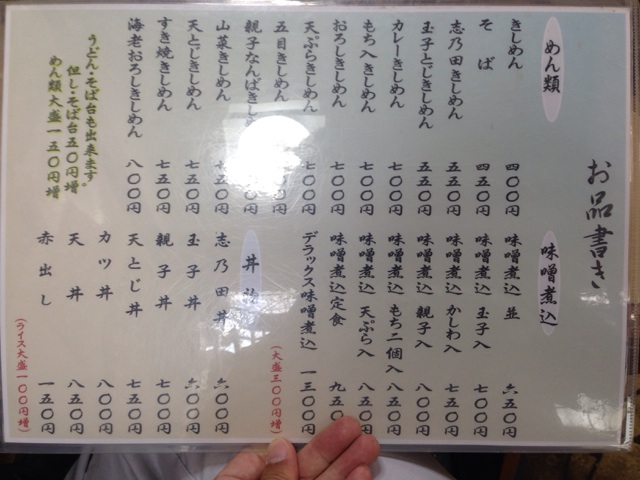 お品書き
めん類
きしめん 四〇〇円
そば 四五〇円
志乃田きしめん 五五〇円
玉子とじきしめん 五五〇円
カレーきしめん 七〇〇円
もち入きしめん 七〇〇円
おろしきしめん 七〇〇円
天ぷらきしめん 七〇〇円
五目きしめん
親子なんばきしめん
山菜きしめん
天とじきしめん 七五〇円
すき焼きしめん 七五〇円
海老おろしきしめん 八〇〇円
うどん・そば台も出来ます。
但し・そば台五〇円増
めん類大盛一五〇円増
味噌煮込
味噌煮込 並 六五〇円
味噌煮込 玉子入 七〇〇円
味噌煮込 かしわ入 七五〇円
味噌煮込 親子入 八〇〇円
味噌煮込 もち二個入 八五〇円
味噌煮込 天ぷら入 八五〇円
味噌煮込定食 九五〇
デラックス味噌煮込 一三〇〇円
(大盛三〇〇円増)
丼
志乃田丼 六〇〇円
玉子丼 六〇〇円
親子丼 七〇〇円
天とじ丼 七五〇円
カツ丼 八〇〇円
天丼 八五〇円
赤出し 一五〇円
(ライス大盛一〇〇円増)